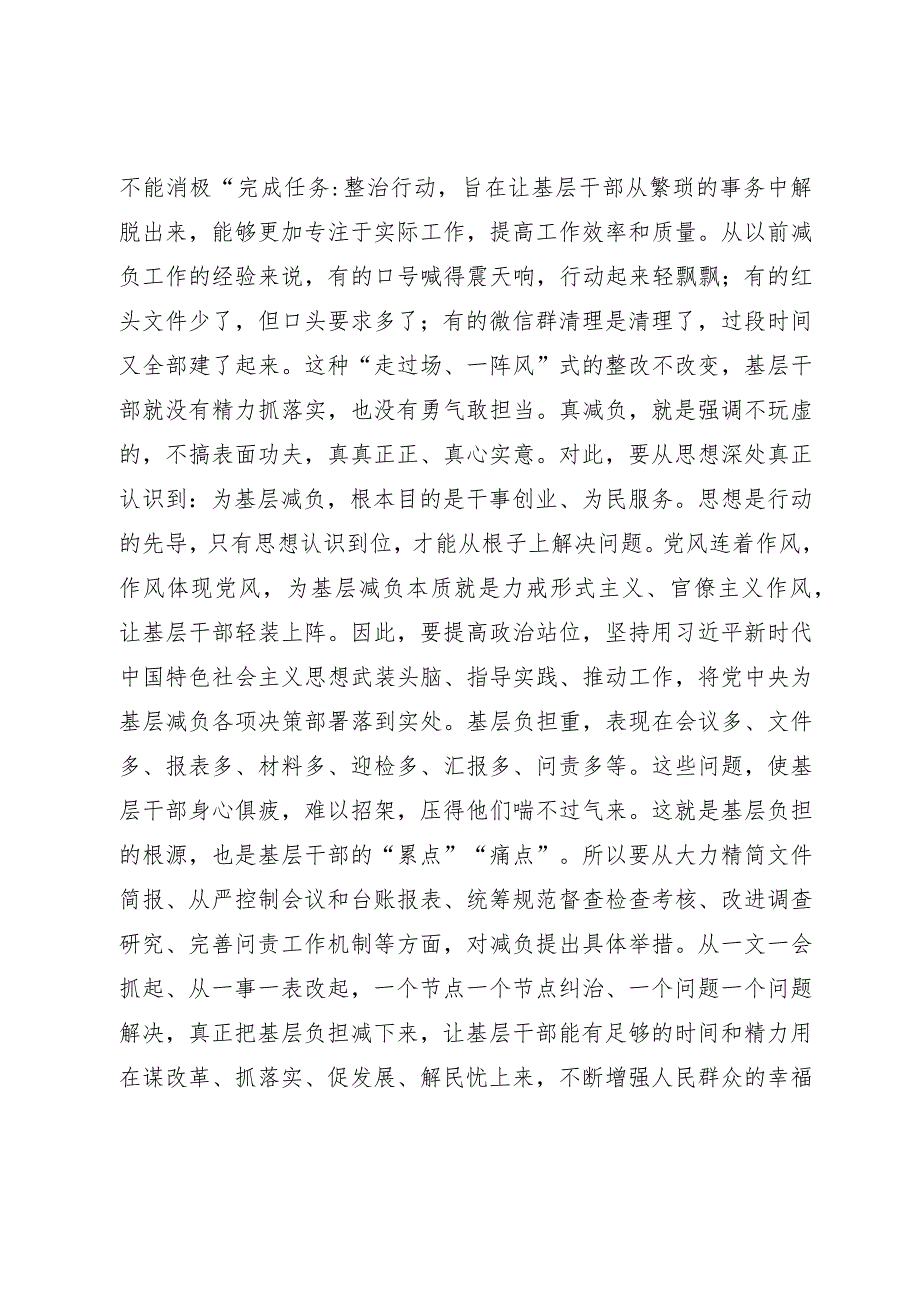 不能消极“完成任务:整治行动，旨在让基层干部从繁琐的事务中解
脱出来，能够更加专注于实际工作，提高工作效率和质量。从以前减
负工作的经验来说，有的口号喊得震天响，行动起来轻飘飘；有的红
头文件少了，但口头要求多了；有的微信群清理是清理了，过段时间
又全部建了起来。这种“走过场、一阵风”式的整改不改变，基层干
部就没有精力抓落实，也没有勇气敢担当。真减负，就是强调不玩虚
的，不搞表面功夫，真真正正、真心实意。对此，要从思想深处真正
认识到：为基层减负，根本目的是干事创业、为民服务。思想是行动
的先导，只有思想认识到位，才能从根子上解决问题。党风连着作风，
作风体现党风，为基层减负本质就是力戒形式主义、官僚主义作风，
让基层干部轻装上阵。因此，要提高政治站位，坚持用习近平新时代
中国特色社会主义思想武装头脑、指导实践、推动工作，将党中央为
基层减负各项决策部署落到实处。基层负担重，表现在会议多、文件
多、报表多、材料多、迎检多、汇报多、问责多等。这些问题，使基
层干部身心俱疲，难以招架，压得他们喘不过气来。这就是基层负担
的根源，也是基层干部的“累点”“痛点”。所以要从大力精简文件
简报、从严控制会议和台账报表、统筹规范督查检查考核、改进调查
研究、完善问责工作机制等方面，对减负提出具体举措。从一文一会
抓起、从一事一表改起，一个节点一个节点纠治、一个问题一个问题
解决，真正把基层负担减下来，让基层干部能有足够的时间和精力用
在谋改革、抓落实、促发展、解民忧上来，不断增强人民群众的幸福